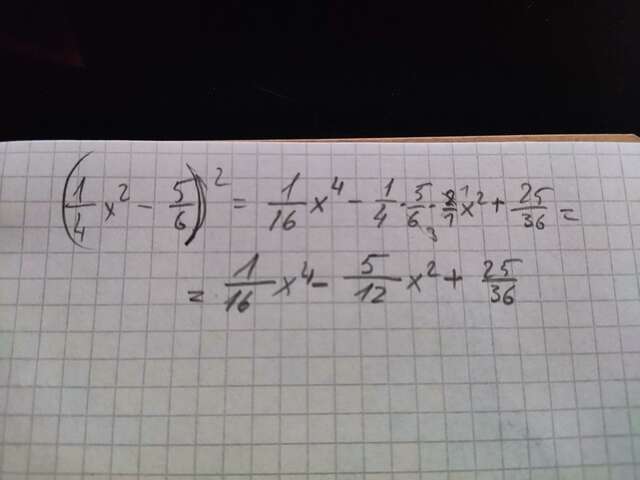 (1/4 x² - 5/6)² = 1/16 x⁴ - 1/4 · 5/6₃ · 2/1 ¹x² + 25/36 =
= 1/16 x⁴ - 5/12 x² + 25/36